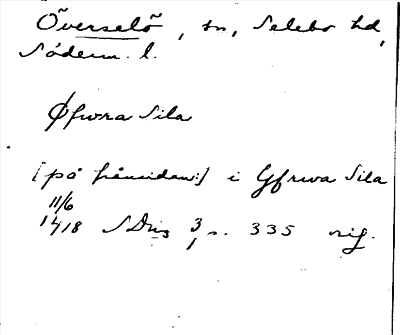 Överselö, sn, Selebo hd,
Söderm. l.
Øfwra Sila
[på frånsidan:] i Yfrwa Sila
11/6
1418 SDns 3, s. 335 orig.